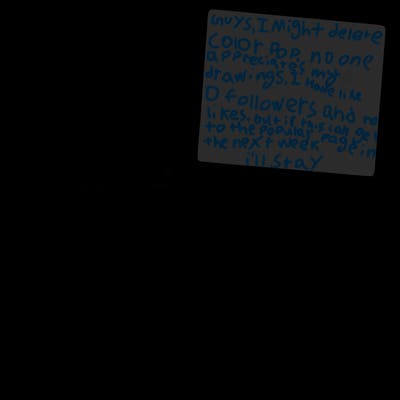 Guys, I Might delete
COlOr POP, no one
appreciates my
drawings. I Have like
0 followers and no
likes. but if this can get
to the popular page in
the next week
i'll stay